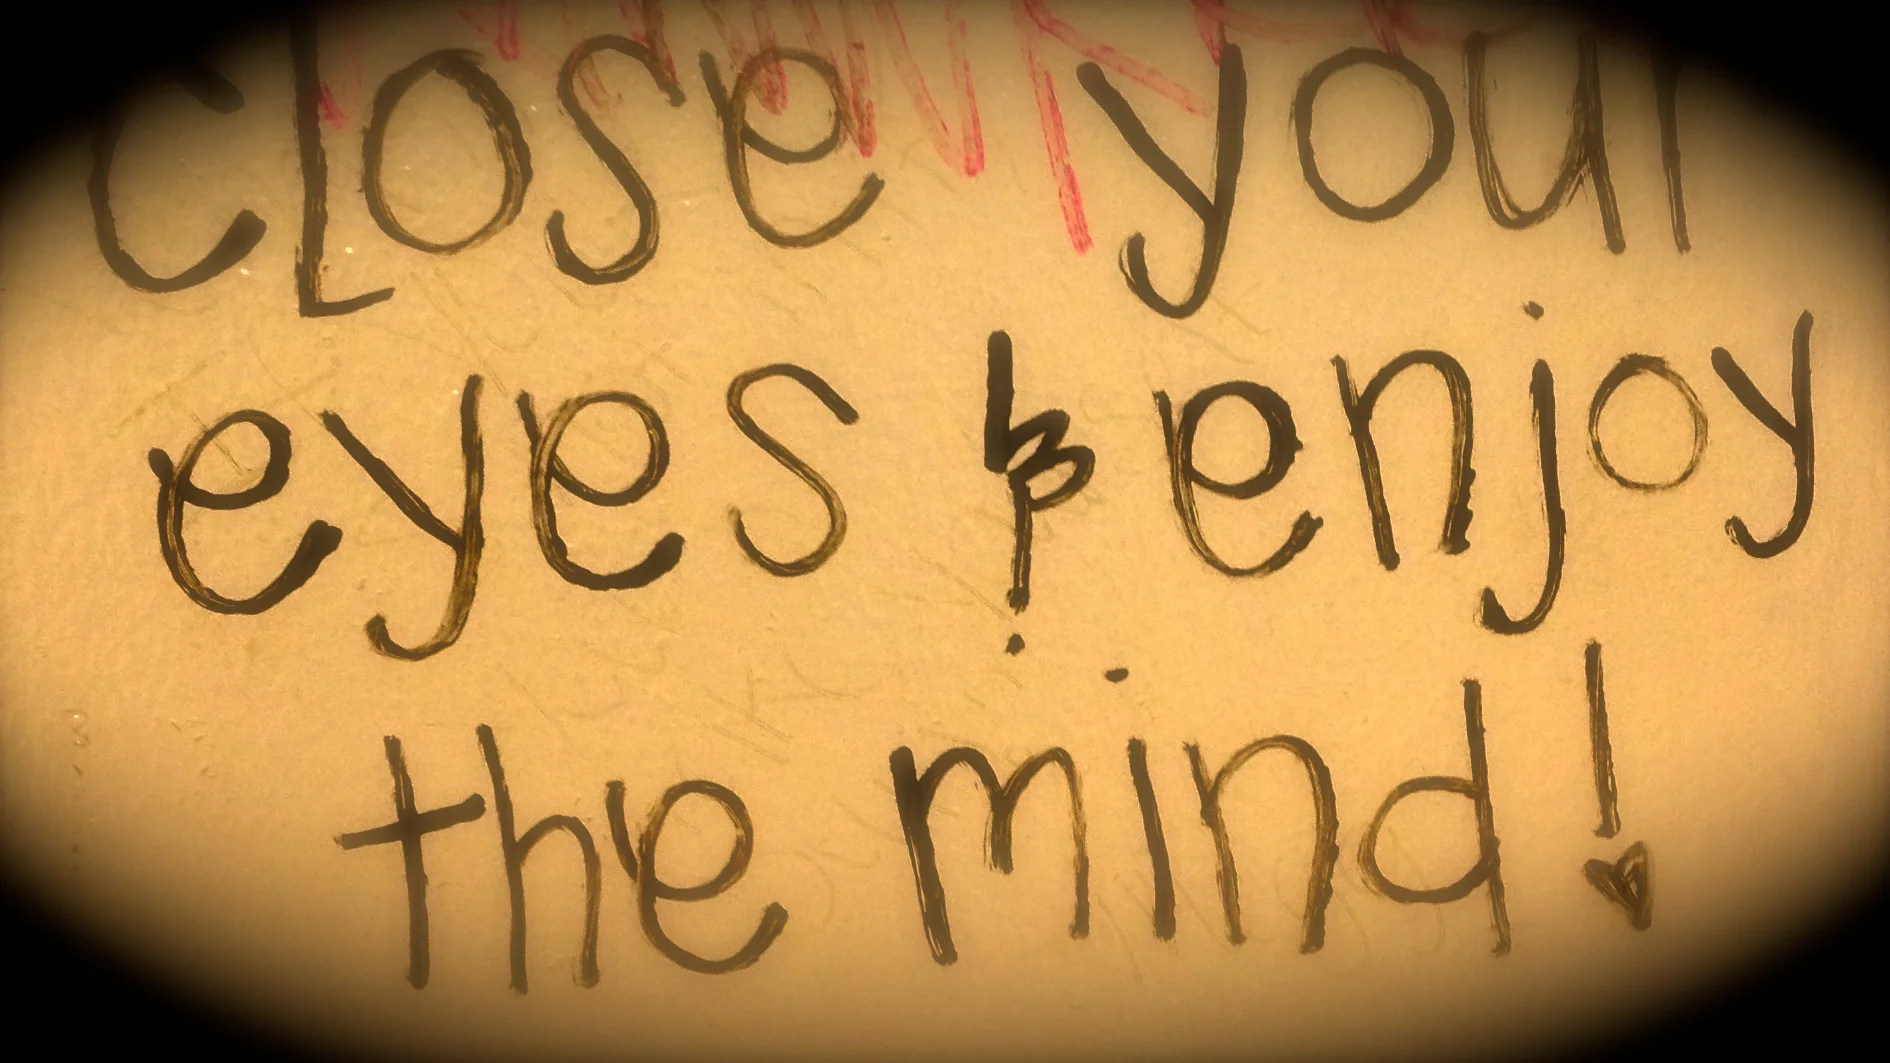 close your
eyes & enjoy
the mind!